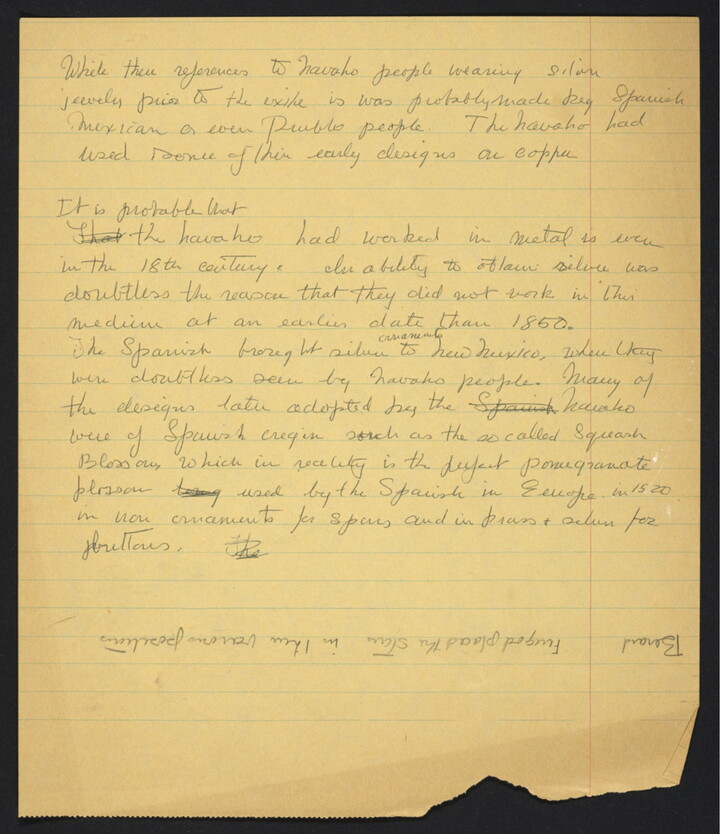 While there references to Navaho people wearing silver
jewelry prior to the exile is was probably made by Spanish
Mexican or even Pueblo people. The Navaho had
used some of their early designs on copper
It is probable that
That the Navaho had worked in metal is even
in the 18th century. Inability to obtain silver was
doubtless the reason that they did not work in this
medium at an earlier date than 1850.
ornaments
The Spanish brought silver to New Mexico, when they
were doubtless seen by Navaho people. Many of
the designs later adopted by the Spanish Navaho
were of Spanish oregin such as the so called Squash
Blossom, which in reality is the perfect pomegranate
blossom used by the Spanish in Eeurope in 1520
in iron ornaments for spurs and in brass + silver for
buttons. The
Berard Firegod placed the stars in their various positions